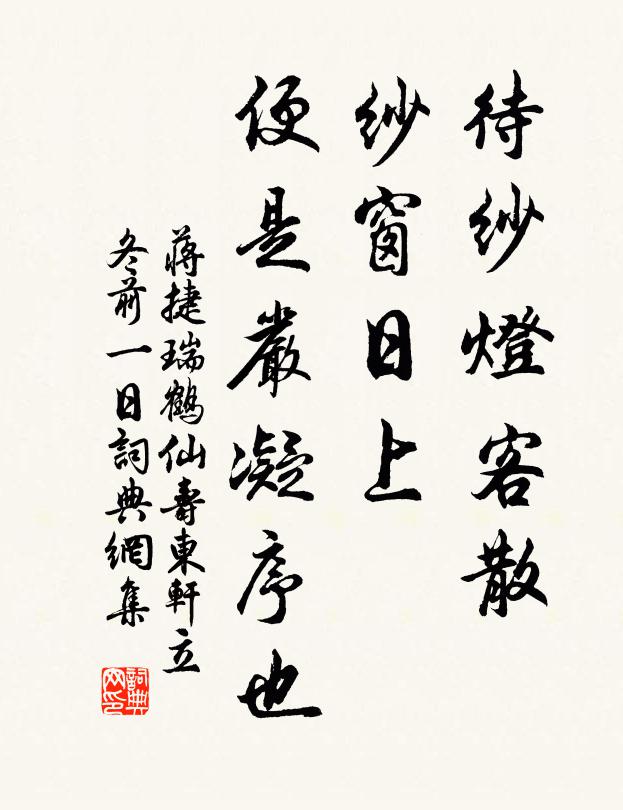 待紗燈客散
紗窗日上
便是嚴凝序也
蔣捷瑞鶴仙壽東軒立
冬前一日詞典網集
詞典
网印